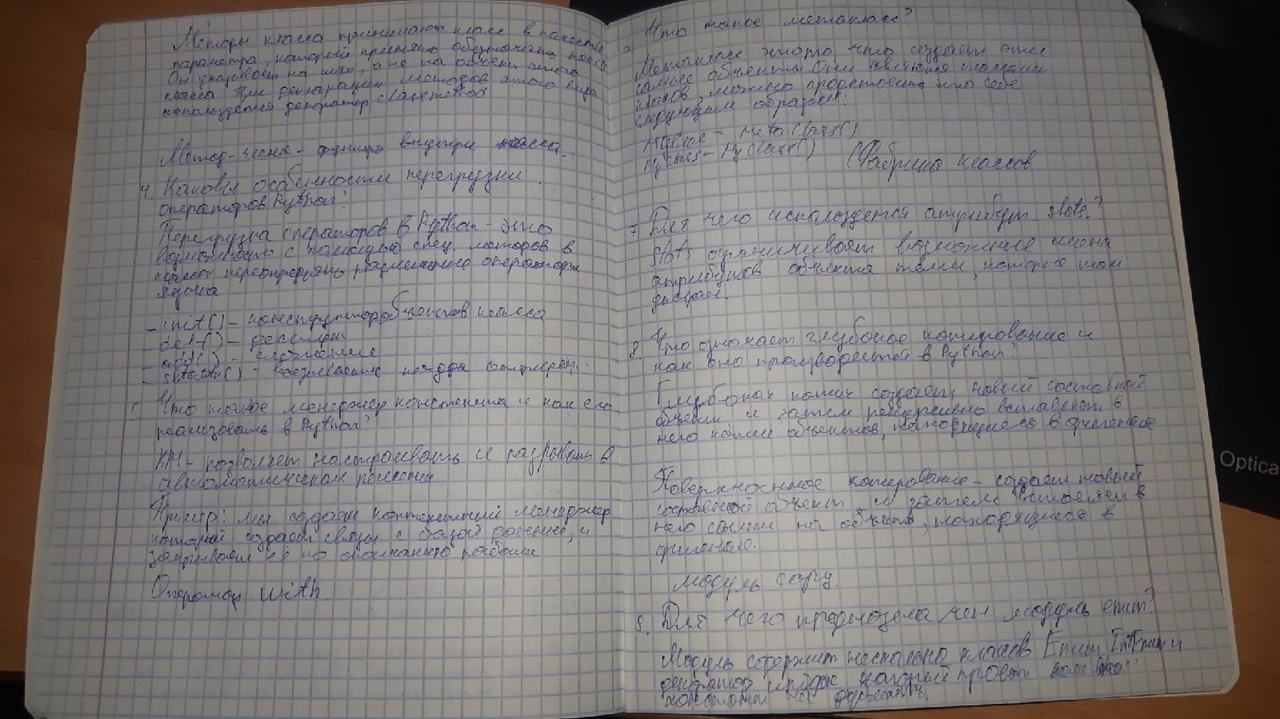 Методы класса принимают класс в качестве
параметра, который принято обозначать как cls
Он указывает на              , а не на объект этого
класса. При декларации методов этого вида
используется декоратор classmethod
Метод-члена - функция внутри класса.
4. Каковы особенности перегрузки
операторов Python?
Перегрузка операторов в Python - это
возможность с помощью спец. методов в
классах переопределять различные операторы
языка
_init() - конструктор объектов класса
_del() -
_add() - сложение
- вызывание
5. Что такое менеджер контекста и как его
реализовать в Python?
КМ - позволяет настраивать и разрывать в
автоматическом режиме
Пример: мы создаем контекстный менеджер
который создает связь с базой данных, и
закрываем её по окончанию работы
Оператор with.
Что такое метакласс?
Метакласс это то, что создаёт эти
самые объекты. Они являются классами
классов, можно представить это себе
следующим образом:
MyClass = MetaClass()
MyClass()
(Фабрика классов
7. Для чего используется атрибут slots?
slots ограничивает возможные имена
атрибутов объекта теми, которые там
указаны.
8. Что означает глубокое копирование и
как оно производится в Python?
Глубокая копия создает новый составной
объект, и затем рекурсивно вставляет в
него копии объектов, находящиеся в оригинале
Поверхностное копирование - создаем новый
составной объект и затем вставляем в
него ссылки на объекты, находящиеся в
оригинале.
модуль copy
9. Для чего предназначен модуль enum?
Модуль содержит несколько классов Enum, IntEnum и
декоратор unique который
Optica